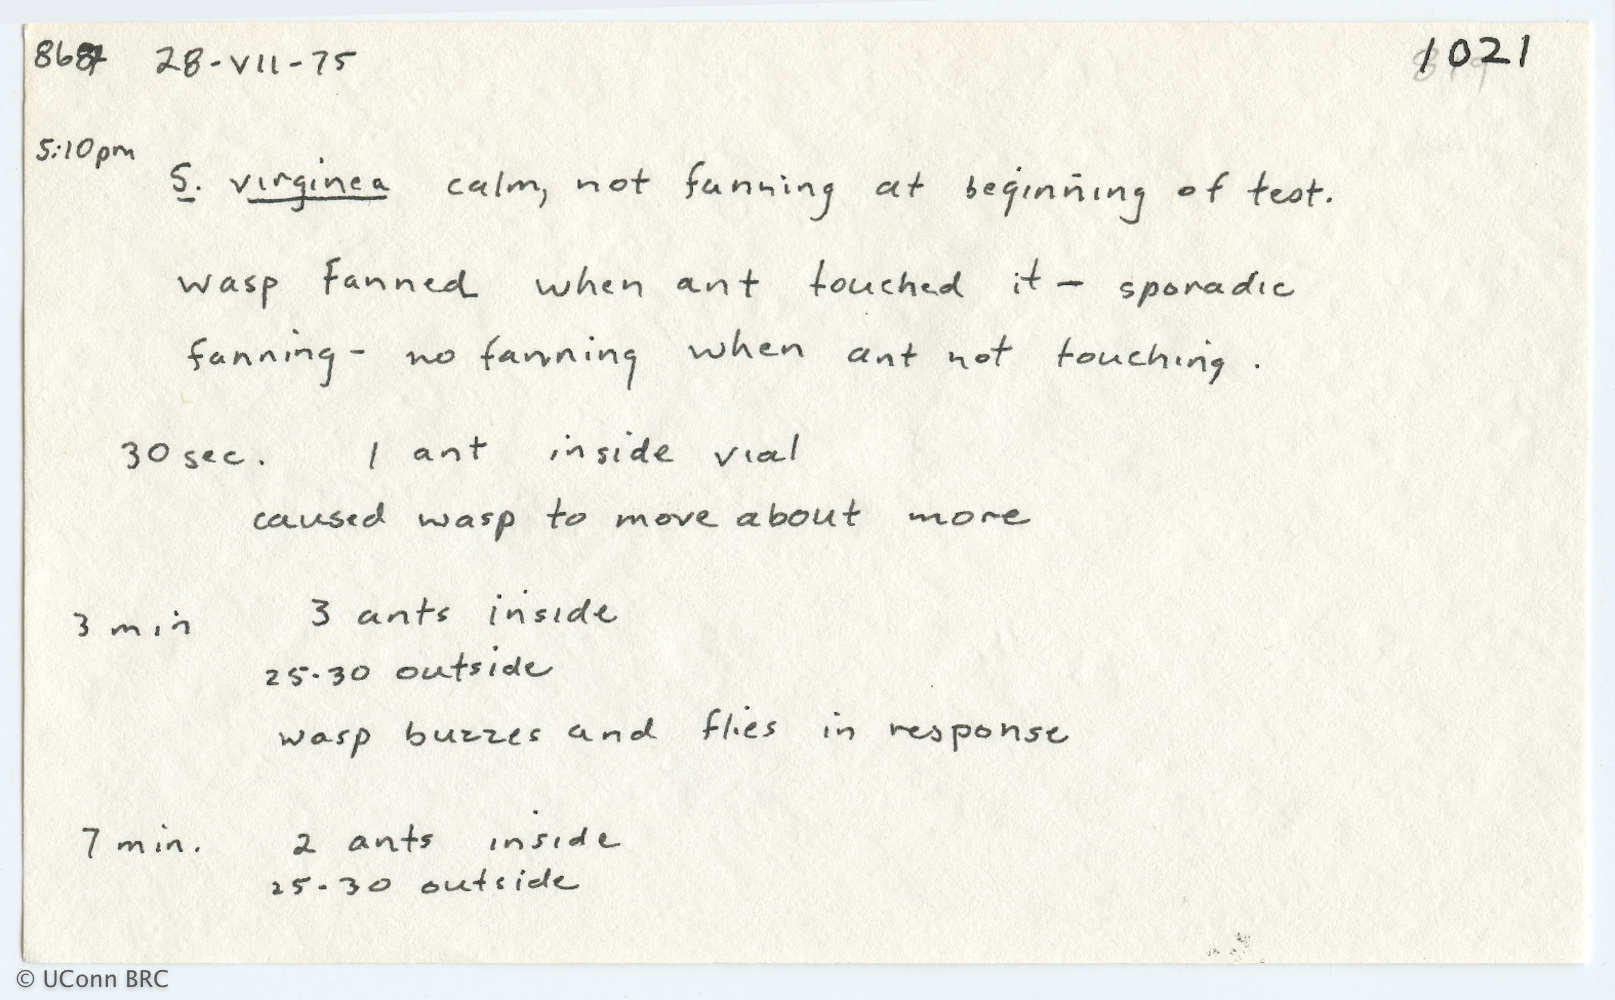 28-VII-75 1021
5:10pm
S. virginea calm, not fanning at beginning of test.
wasp fanned when ant touched it - sporadic
fanning - no fanning when ant not touching.
30 sec. 1 ant inside vial
caused wasp to move about more
3 min 3 ants inside
25-30 outside
wasp buzzes and flies in response
7 min. 2 ants inside
25-30 outside
© UConn BRC